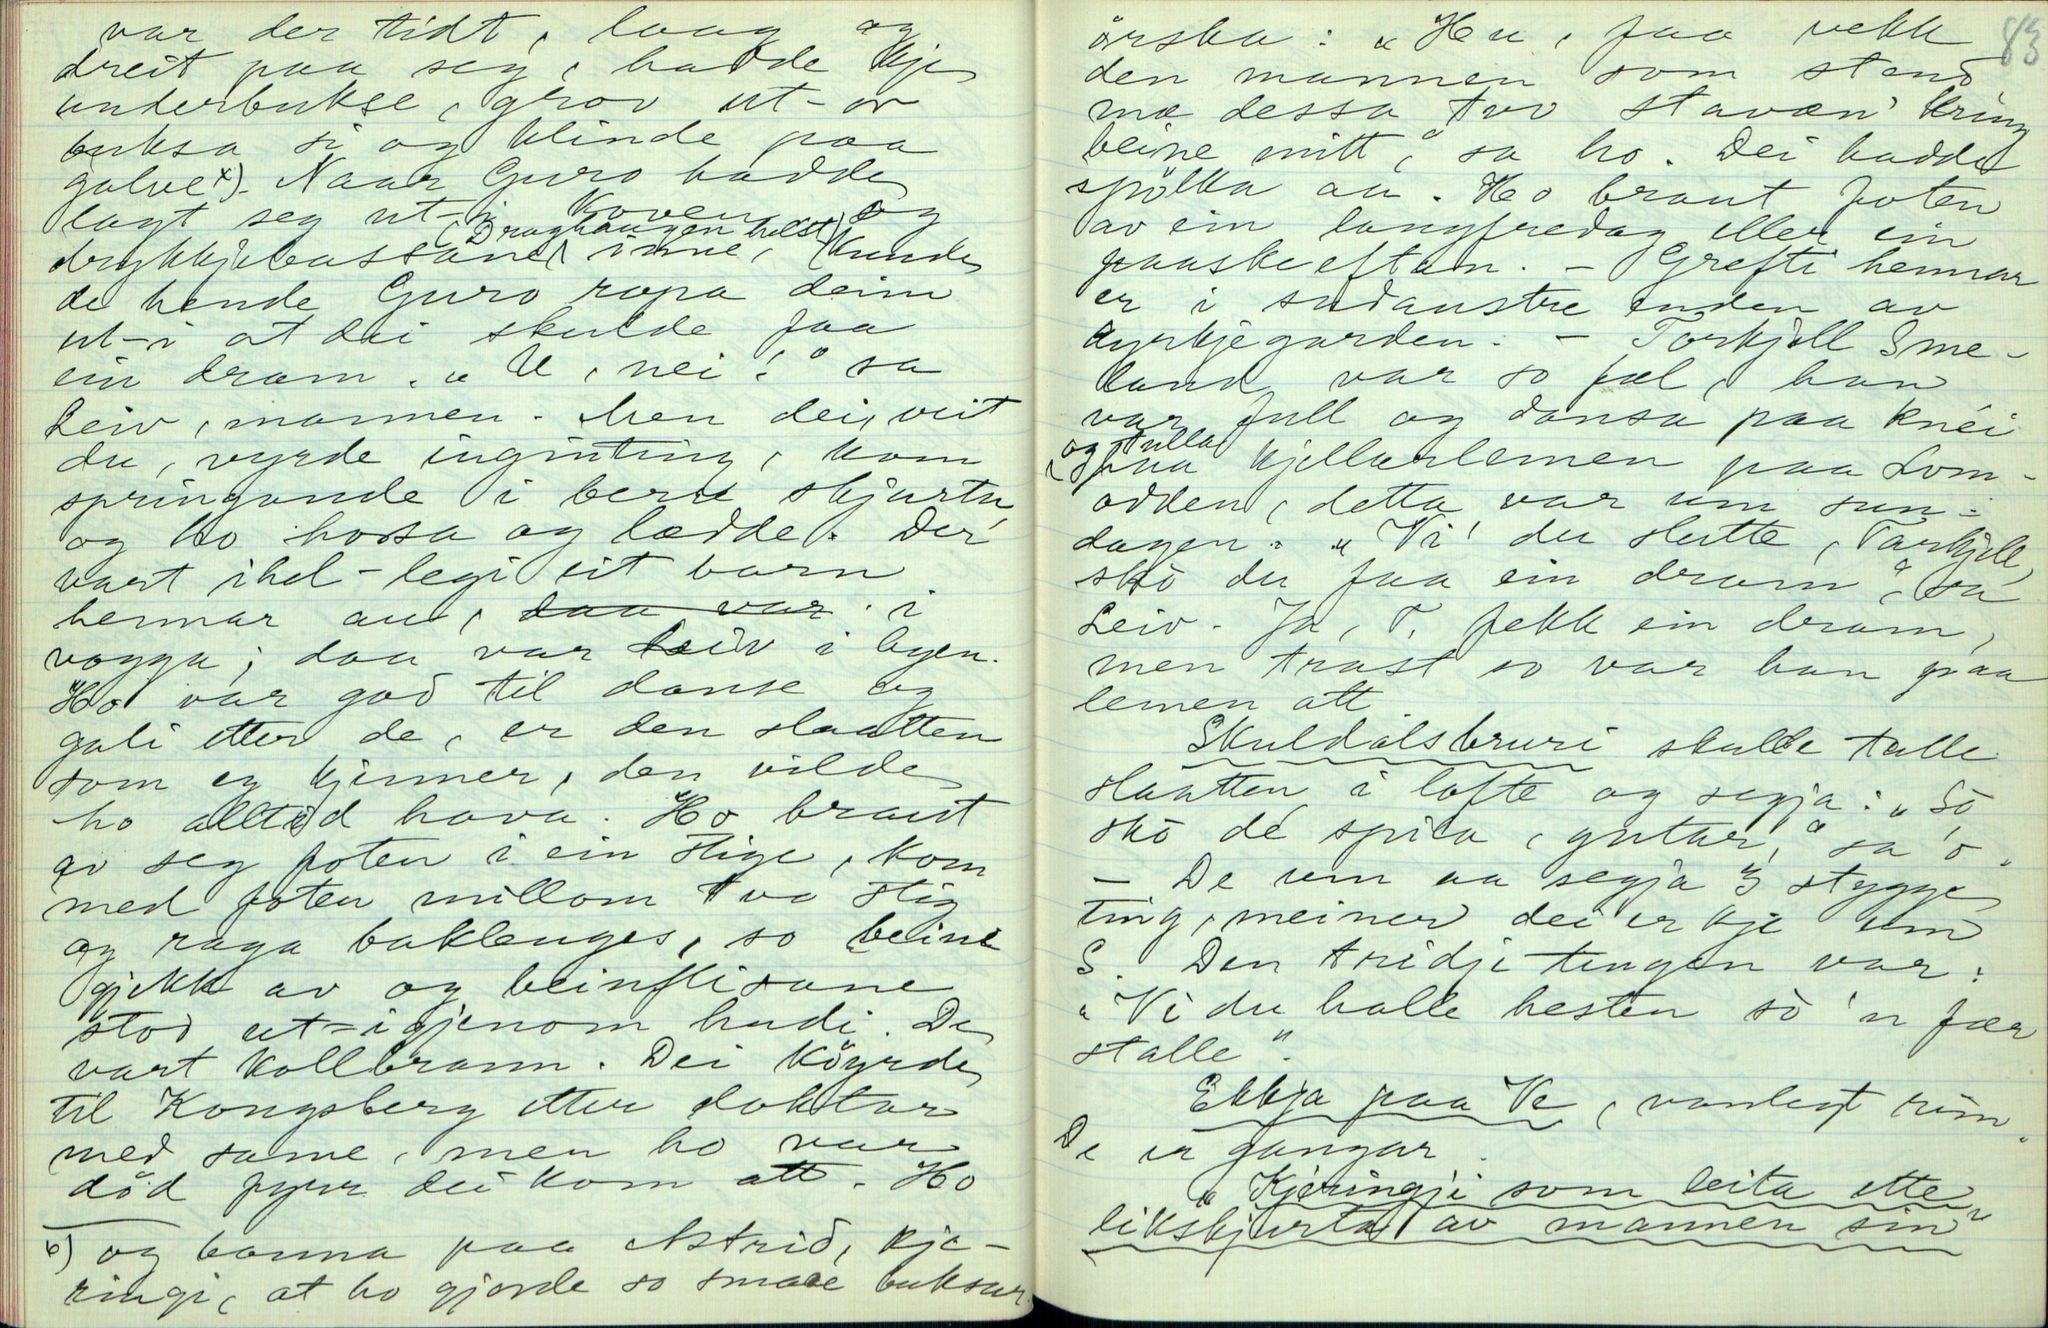 var der tidt, laag og
dreit paa seg, hadde kje
underbukse, grov ut-or
buksa si og klinde paa
golve x). Naar Guro hadde
lagt seg ut-i koven og
(Draghaugen helst)
drykkjebassane inne, kunde
de hende Guro ropa deim
ut-i at dei skulde faa
ein dram. "U, nei!" sa
Leiv, mannen. Men dei, veit
du, vyrde inginting, kom
springande i berre skjurta,
og ho hossa og lædde. Der
vart ihel-legi eit barn
hennar au, daa var i
vogga; daa var Leiv i byen.
Ho var god til danse og
gali etter de, er den slaatten
som eg kjenner, den vilde
ho alltid hava. Ho braut
av seg foten i ein stige, kom
med foten millom two stig
og raga baklenges, so beine
gjekk av og beinflisane
stod ut-igjenom hudi. De
vart kollbrann. Dei köyrde
til Kongsberg etter doktar
med same, men ho var
död fyrr dei kom att. Ho
x) og banna paa Astrid, kje-
ringi, at ho gjorde so smaae buksur.
83
örska: "Hu, faa vekk
den mannen som stend
mæ dessa two stavan' kring
beine mitt," sa ho. Dei hadde
spjölka au. Ho braut foten
av ein langfredag eller ein
paaskeeftan. - Grefti hennar
er i sudaustre enden av
kyrkjegarden. - Torkjell Sme-
land var so fæl, han
var full og dansa paa knéi
og tulla
paa kjellarlemen paa Lom-
odden, detta var um sun-
dagen. "Vi' du slutte, Tarkjell,
sko du faa ein dram", sa
Leiv. Ja, T. fekk ein dram,
men trast so var han paa
lemen att
Skuldalsbruri skulde tulle
slaatten i lofte og segja: "So
sko de spila, gutar," sa 'o.
- De um aa segja 3 stygge
ting, meiner dei er kje um
S. Den tridje tingen var:
"Vi du halle hesten so 'n fær
stalle".
Ekkja paa Ve, vanlegt rim.
De er gangar.
"Kjeringji som leita etter
likskjurta av mannen sin"